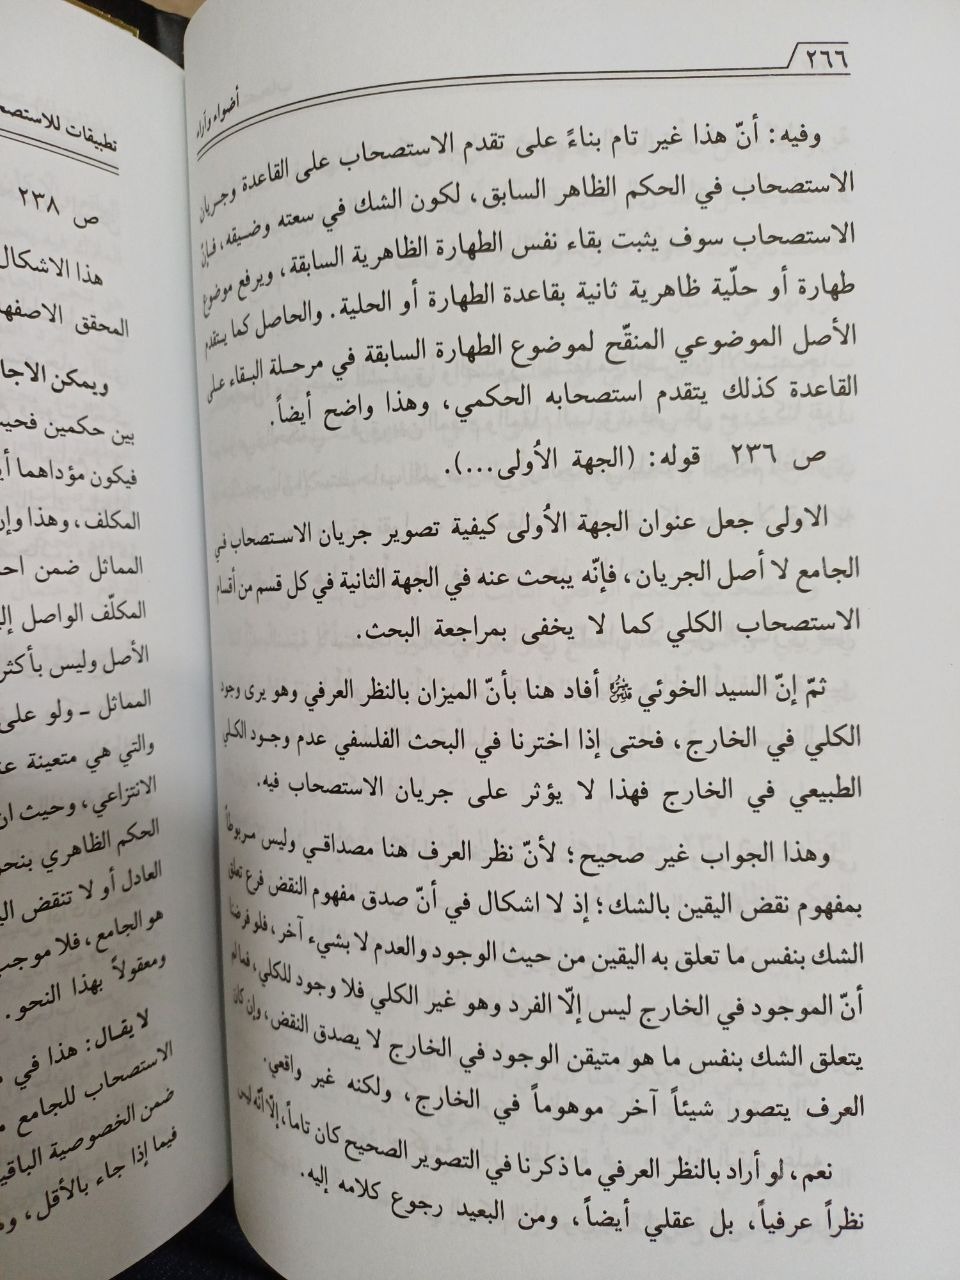 ٢٦٦
أضواء وآراء
وفيه: أنّ هذا غير تام بناءً على تقدم الاستصحاب على القاعدة وجريان
الاستصحاب في الحكم الظاهر السابق، لكون الشك في سعته وضيقه، فإنّ
الاستصحاب سوف يثبت بقاء نفس الطهارة الظاهرية السابقة، ويرفع موضوع
طهارة أو حلّية ظاهرية ثانية بقاعدة الطهارة أو الحلية. والحاصل كما يتقدم
الأصل الموضوعي المنقّح لموضوع الطهارة السابقة في مرحلة البقاء على
القاعدة كذلك يتقدم استصحابه الحكمي، وهذا واضح أيضاً.
ص ٢٣٦ قوله: (الجهة الأولى...).
الاولى جعل عنوان الجهة الأولى كيفية تصوير جريان الاستصحاب في
الجامع لا أصل الجريان، فإنّه يبحث عنه في الجهة الثانية في كل قسم من أقسام
الاستصحاب الكلي كما لا يخفى بمراجعة البحث.
ثمّ إنّ السيد الخوئي أفاد هنا بأنّ الميزان بالنظر العرفي وهو يرى وجود
الكلي في الخارج، فحتى إذا اخترنا في البحث الفلسفي عدم وجود الكلي
الطبيعي في الخارج فهذا لا يؤثر على جريان الاستصحاب فيه.
وهذا الجواب غير صحيح؛ لأنّ نظر العرف هنا مصداقي وليس مربوطاً
بمفهوم نقض اليقين بالشك؛ إذ لا اشكال في أنّ صدق مفهوم النقض فرع تعلق
الشك بنفس ما تعلق به اليقين من حيث الوجود والعدم لا بشيء آخر، فلو فرضنا
أنّ الموجود في الخارج ليس إلّا الفرد وهو غير الكلي فلا وجود للكلي، فما لم
يتعلق الشك بنفس ما هو متيقن الوجود في الخارج لا يصدق النقض، وإن كان
العرف يتصور شيئاً آخر موهوماً في الخارج، ولكنه غير واقعي.
نعم، لو أراد بالنظر العرفي ما ذكرنا في التصوير الصحيح كان تاماً، إلّا أنّه ليس
نظراً عرفياً، بل عقلي أيضاً، ومن البعيد رجوع كلامه إليه.
تطبيقات للاستصح
ص ٢٣٨
هذا الاشكال
المحقق الاصفه
ويمكن الاجا
بين حكمين فحيـ
فيكون مؤداهما أيـ
المكلف، وهذا وإن
المماثل ضمن احد
المكلّف الواصل إلي
الأصل وليس بأكثر
المماثل ـ ولو على
والتي هي متعينة عنـ
الانتزاعي، وحيث ان
الحكم الظاهري بنحو
العادل أو لا تنقض الي
هو الجامع، فلا موجب
ومعقولاً بهذا النحو.
لا يقال: هذا في
الاستصحاب للجامع
ضمن الخصوصية الباقي
فيما إذا جاء بالأقل،